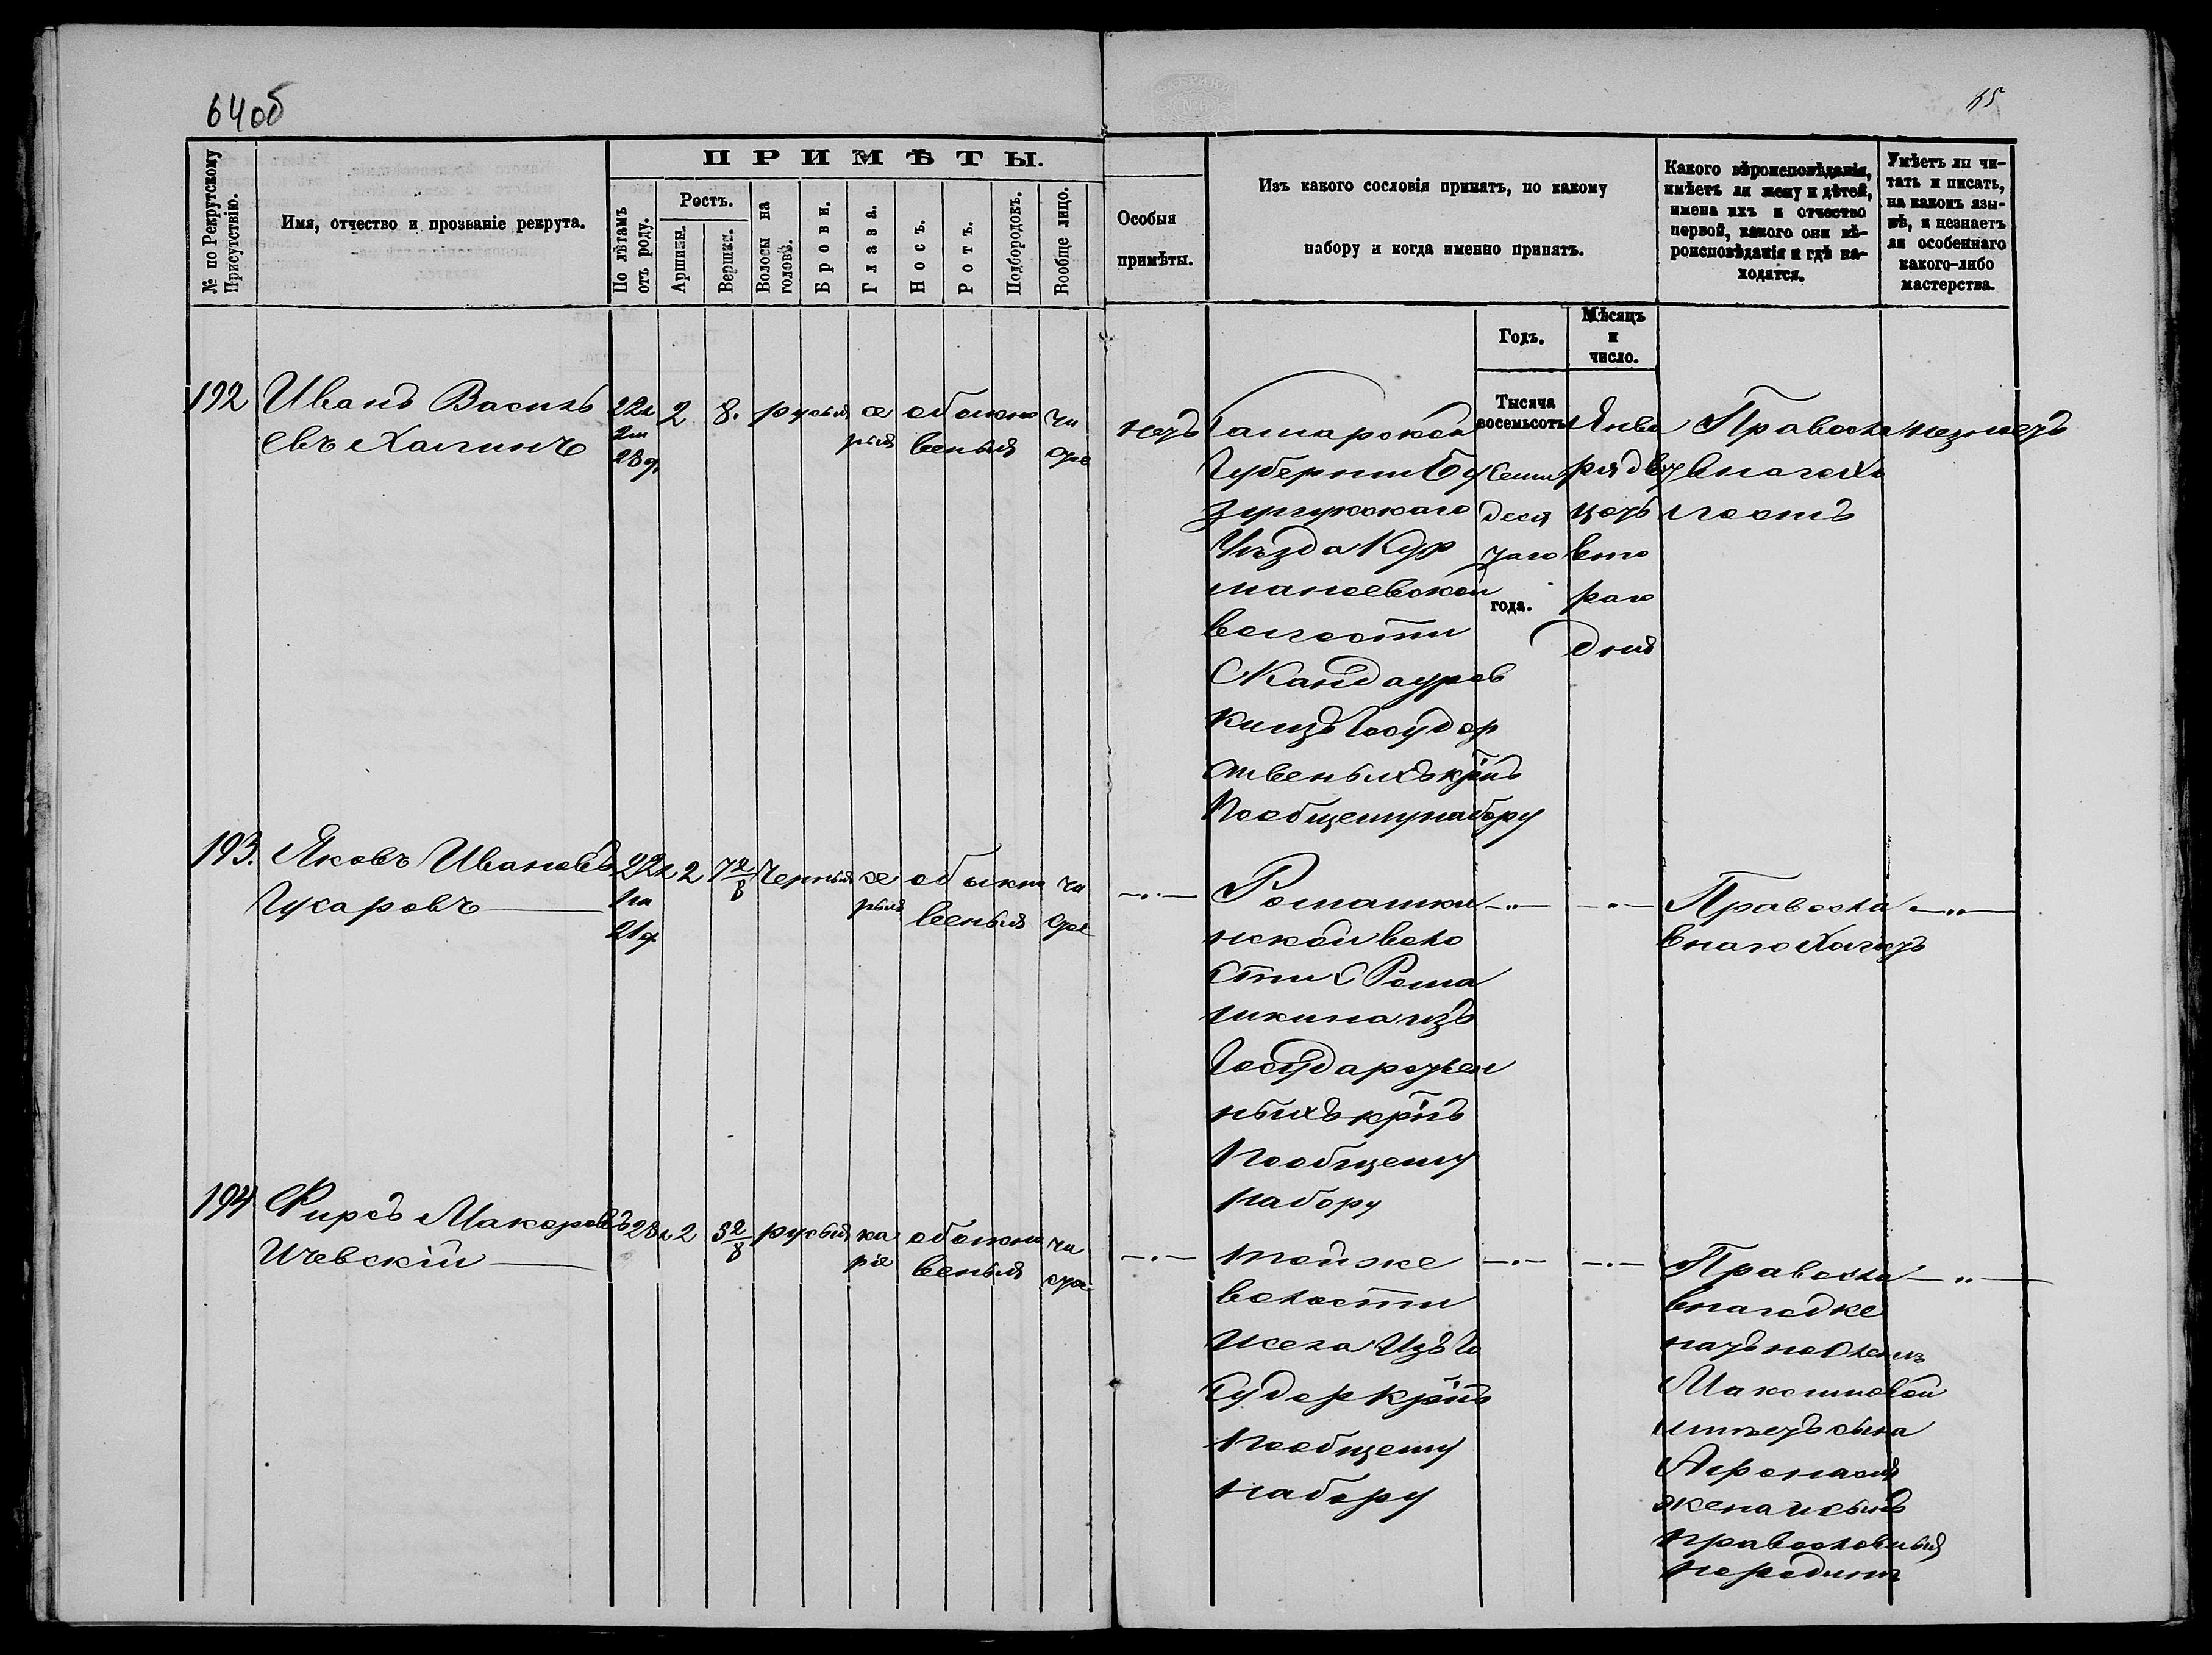 64об
65
№ по Рекрутскому Присутствію.
Имя, отчество и прозваніе рекрута.
ПРИМѢТЫ.
По лѣтамъ отъ роду.
Ростъ.
Аршины.
Вершки.
Волосы на головѣ.
Брови.
Глаза.
Носъ.
Ротъ.
Подбородокъ.
Вообще лицо.
Особыя примѣты.
Изъ какого сословія принятъ, по какому
набору и когда именно принятъ.
Годъ.
Мѣсяцъ
и
число.
Какого вѣроисповѣданія,
имѣетъ ли жену и дѣтей,
имена ихъ и отчество
первой, какого они вѣ-
роисповѣданія и гдѣ на-
ходятся.
Умѣетъ ли чи-
тать и писать,
на какомъ язы-
кѣ, и незнаетъ
ли особеннаго
какого-либо
мастерства.
192
Иванъ Василь
евъ Халинъ
22л
2м
28д.
2
8.
русыя
се
рыя
обыкно
веныя
чи
стое
нетъ
Самарской
Губерніи Бу
зулукскаго
Уѣзда Кур
манаевской
волости
С Кандауров
ки изъ Государ
ственыхъ крпъ
Пообщему набору
Тысяча
восемьсотъ
семи
деся
таго
года.
Янва
ря два
цать
вто
раго
дня
Правосла
внаго хо
лостъ
незнаетъ
193.
Яковъ Ивановъ
Гукаровъ
22л
1м
21д.
2
7 2/8
Черныя
се
рые
обыкно
веныя
чи
стое
Ромашки
нской воло
сти С Рома
шкина изъ
Государствен
ныхъ крпъ
Пообщему
набору
Правосла
внаго Холостъ
194
Фирсъ Макаровъ
Ичевскій
23л
2
3 2/8
русыя
ка
ріе
обыкно
веныя
чи
стое
тойже
волости
и села Изъ Го
судар крпъ
Пообщему
набору
Правосла
внаго же
натъ на
Максимовой
имѣетъ сына
Афонасія
жена и сынъ
православныя
народинѣ